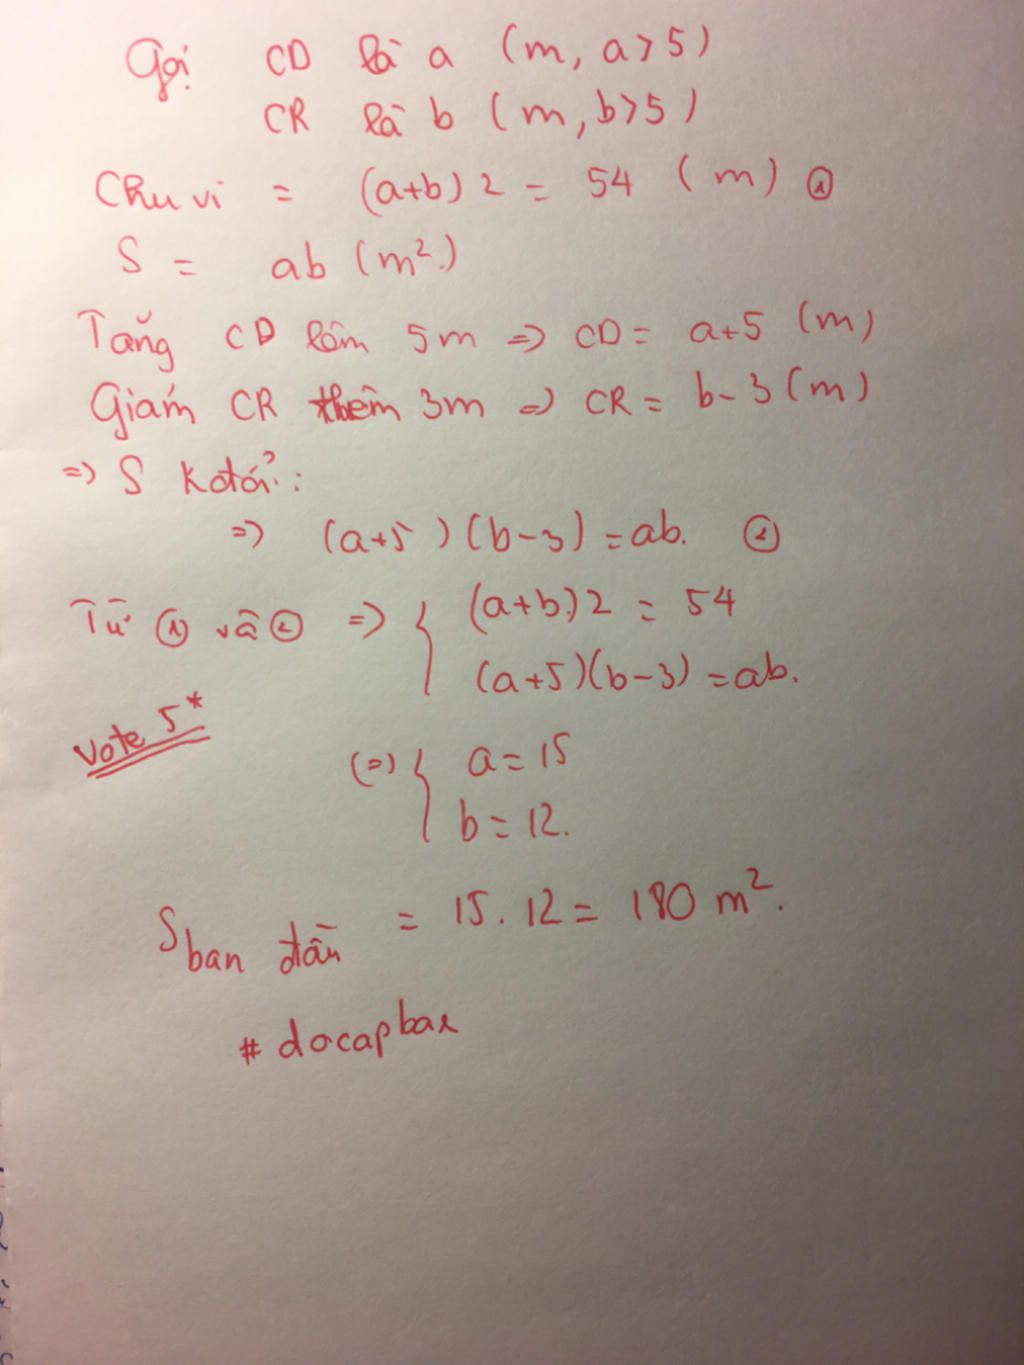 Gọi CD là a (m, a>5)
CR là b (m, b>5)
Chu vi = (a+b) 2 = 54 (m) ①
S = ab (m².)
Tăng CD lên 5m => CD = a+5 (m)
Giảm CR thêm 3m => CR = b-3 (m)
=> S K đổi :
=> (a+5)(b-3) = ab. ②
Từ ① và ② => { (a+b.)2 = 54
(a+5)(b-3) = ab.
Vote 5*
(=) { a = 15
b = 12.
S ban đầu = 15. 12 = 180 m².
# docapbar